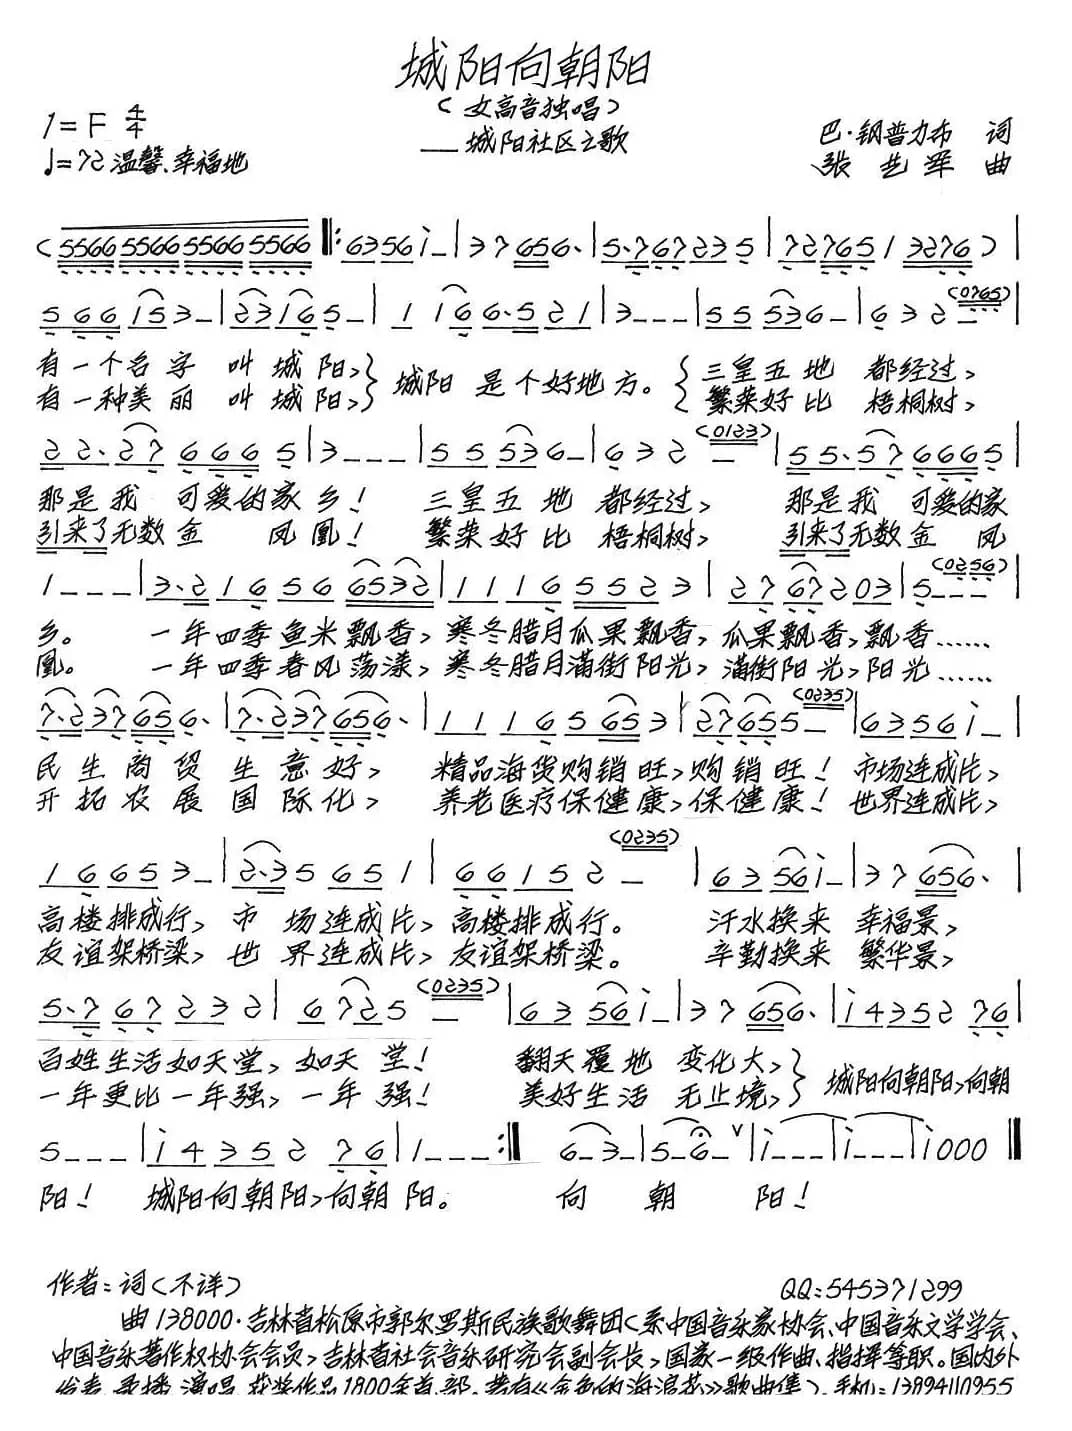 城阳向朝阳
(女高音独唱)
1=F 4/4
——城阳社区之歌
巴·钢普力布 词
♩=72 温馨、幸福地
张艺军 曲
(5566 5566 5566 5566 ‖: 6356 i – | 3 7 656· | 5·767 23 5 | 72765 1 3276) |
5 66 i53 – | 23165 – | 1 166·521 | 3 – – – | 55536 – | 6 3 2 – (0765) |
有一个名字 叫城阳, 城阳 是个好地方。 三皇五地 都经过,
有一种美丽 叫城阳, 繁荣好比 梧桐树,
22·27 6665 | 3 – – – | 55536 – | 6 3 2 – (0123) | 55·57 6665 |
那是我 可爱的家乡! 三皇五地 都经过, 那是我 可爱的家
引来了无数金 凤凰! 繁荣好比 梧桐树, 引来了无数金 凤
1 – – – | 3·216 56 6532 | 1116 5523 | 27 67203 | 5 – – – (0256) |
乡。 一年四季鱼米飘香, 寒冬腊月瓜果飘香, 瓜果飘香, 飘香……
凰。 一年四季春风荡漾, 寒冬腊月满街阳光, 满街阳光, 阳光……
7·237656· | 7·237656· | 1116 5653 | 27655 – (0235) | 6356 i – |
民生商贸生意好, 精品海货购销旺, 购销旺! 市场连成片,
开拓农展国际化, 养老医疗保健康, 保健康! 世界连成片,
16653 – | 2·35651 | 66152 – (0235) | 6356 i – | 3 7 656· |
高楼排成行, 市场连成片, 高楼排成行。 汗水换来 幸福景,
友谊架桥梁, 世界连成片, 友谊架桥梁。 辛勤换来 繁华景,
5·767232 | 6725 – (0235) | 6356 i – | 3 7 656· | i4352 76 |
百姓生活如天堂, 如天堂! 翻天覆地 变化大, 城阳向朝阳, 向朝
一年更比一年强, 一年强! 美好生活 无止境,
5 – – – | i4352 76 | 1 – – – :‖ 6 – 3 – | 5 – 6 – ∨ | i – – – | i – – – | i000 ‖
阳! 城阳向朝阳, 向朝阳。 向 朝 阳!
作者:词(不详)
QQ:545371299
曲138000·吉林省松原市郭尔罗斯民族歌舞团(系中国音乐家协会、中国音乐文学学会、
中国音乐著作权协会会员,吉林省社会音乐研究会副会长,国家一级作曲、指挥等职。国内外
发表、录播、演唱、获奖作品1800余首、部。著有《金色的海浪花》歌曲集)。手机:13894110955